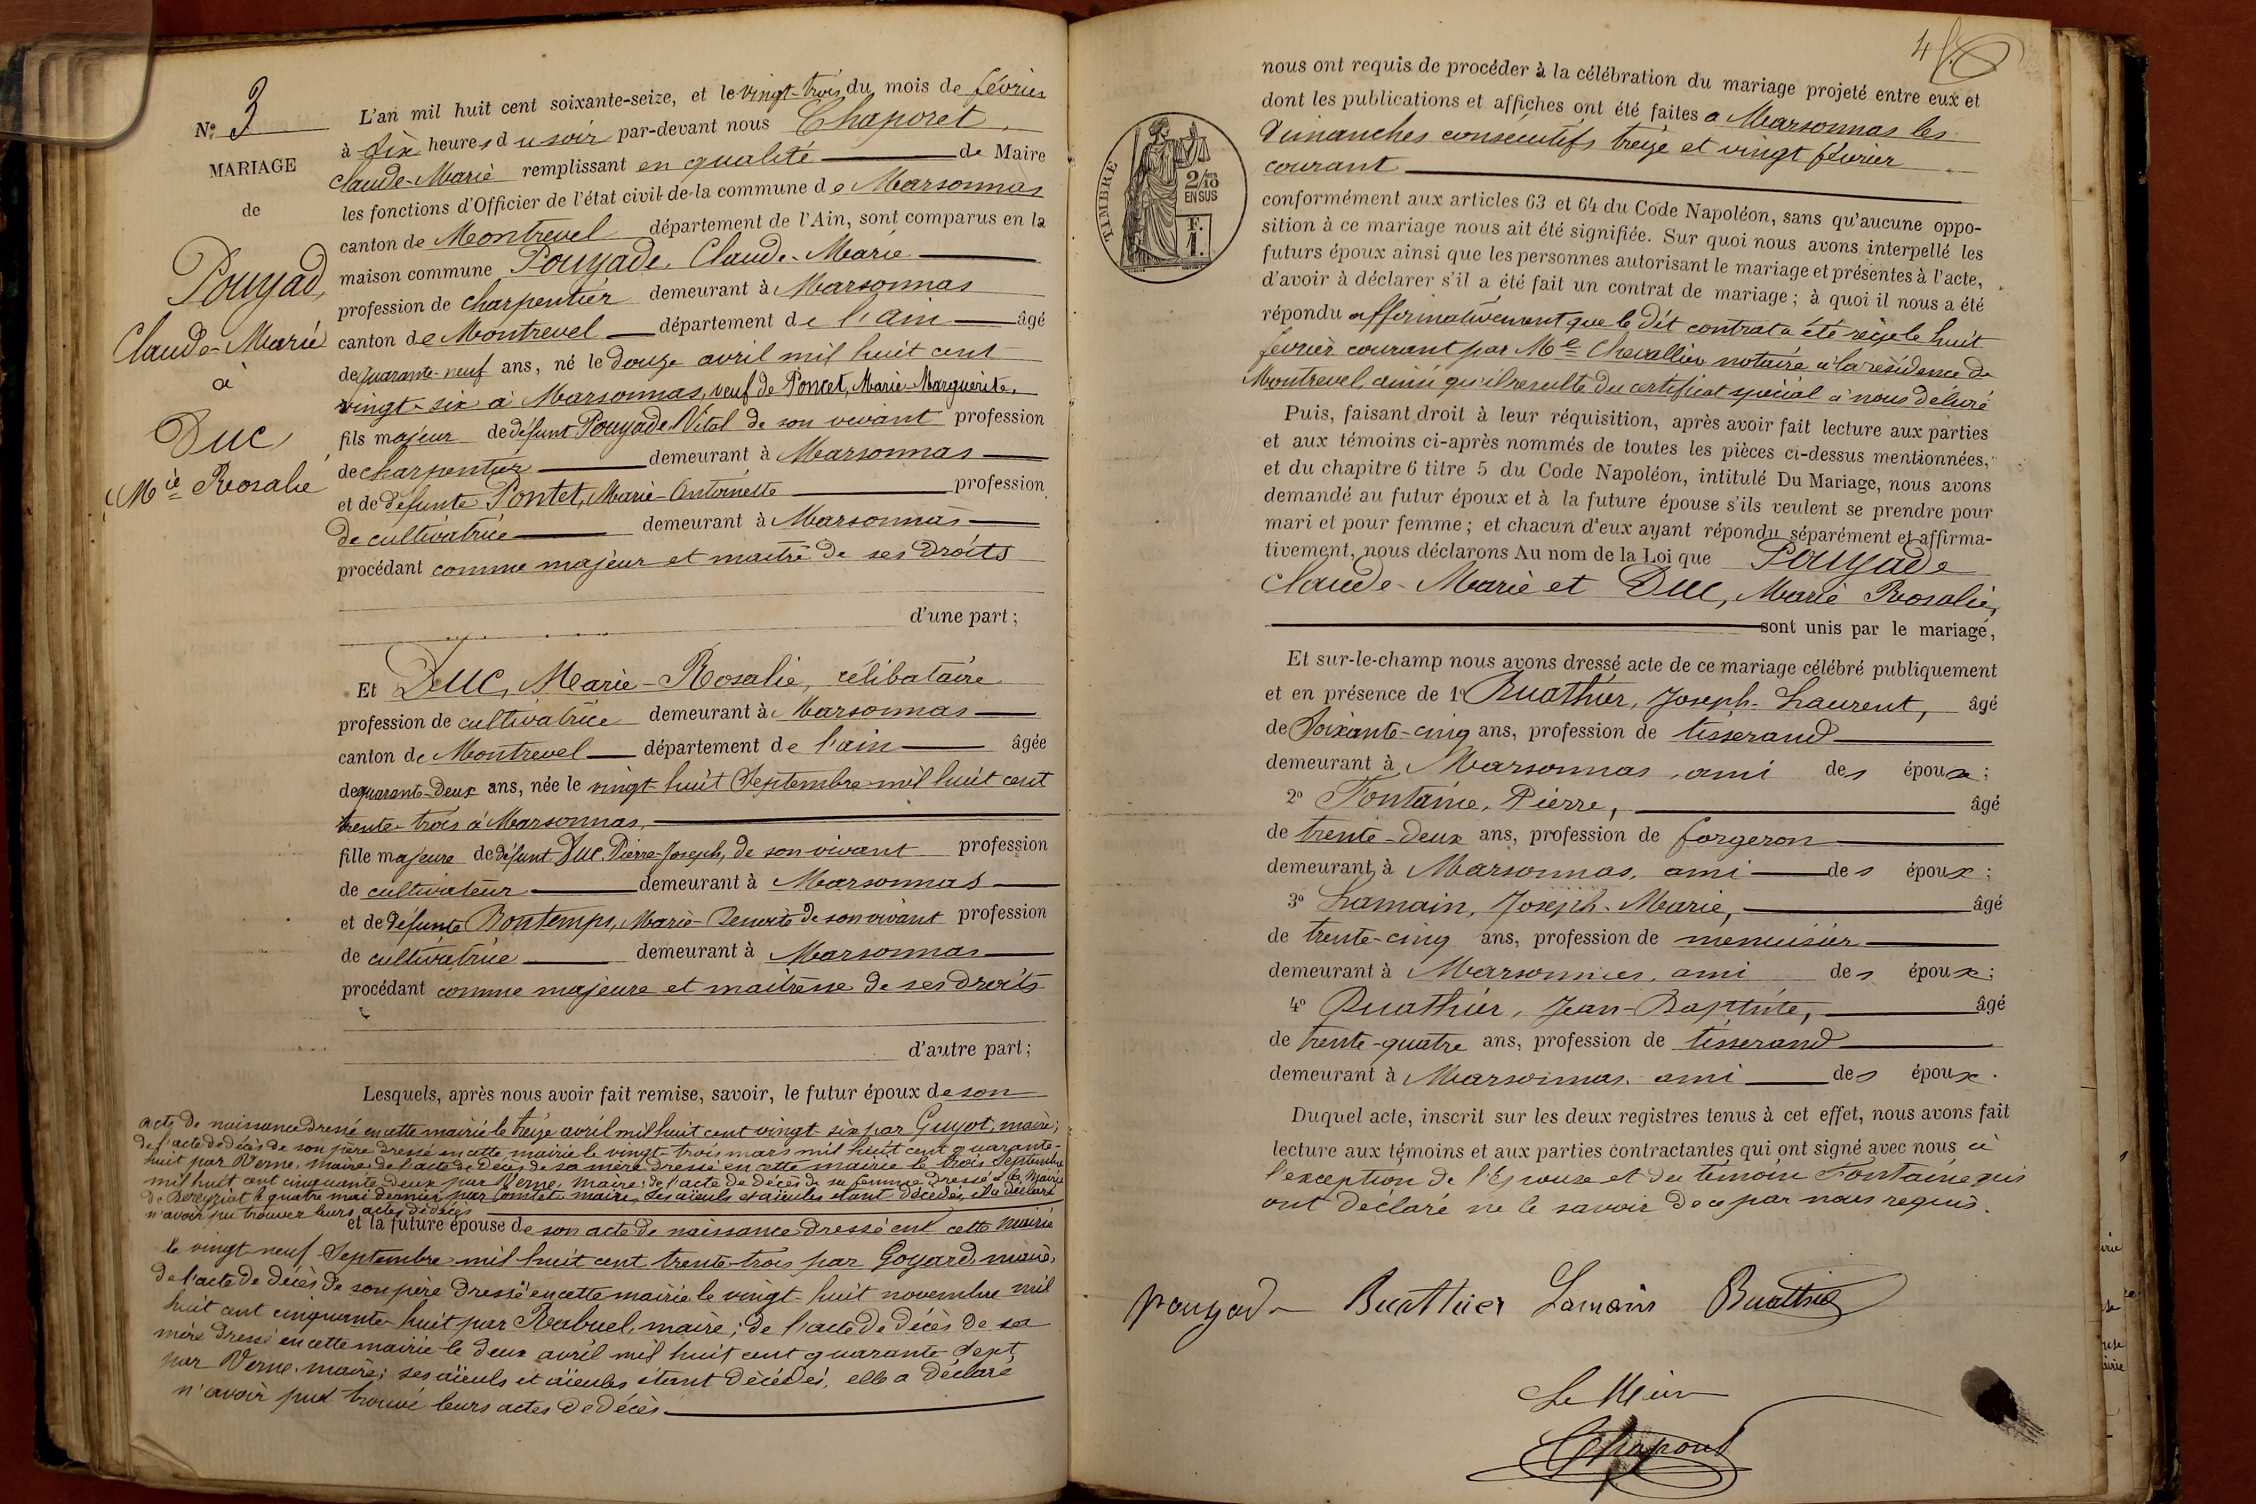 N° 3
MARIAGE
de
Pouyad,
Claude-Marie
à
Duc
Mie Rosalie
L'an mil huit cent soixante-seize, et le vingt-trois du mois de février
à dix heures du soir par-devant nous Chaporet
Claude-Marie remplissant en qualité de Maire
les fonctions d'Officier de l'état civil de la commune de Marsonnas
canton de Montrevel département de l'Ain, sont comparus en la
maison commune Pouyade, Claude-Marie
profession de charpentier demeurant à Marsonnas
canton de Montrevel département de l'ain âgé
de quarante-neuf ans, né le douze avril mil huit cent
vingt-six à Marsonnas, veuf de Poncet, Marie-Marguerite,
fils majeur de défunt Pouyade Vital de son vivant profession
de charpentier demeurant à Marsonnas
et de défunte Pontet, Marie-Antoinette profession
de cultivatrice demeurant à Marsonnas
procédant comme majeur et maître de ses droits
d'une part;
Et Duc, Marie-Rosalie, célibataire
profession de cultivatrice demeurant à Marsonnas
canton de Montrevel département de l'ain âgée
de quarante-deux ans, née le vingt-huit Septembre mil huit cent
trente-trois à Marsonnas,
fille majeure de défunt Duc Pierre-Joseph, de son vivant profession
de cultivateur demeurant à Marsonnas
et de défunte Bontemps, Marie- de son vivant profession
de cultivatrice demeurant à Marsonnas
procédant comme majeure et maitresse de ses droits
d'autre part;
Lesquels, après nous avoir fait remise, savoir, le futur époux de son
acte de naissance dressé en cette mairie le treize avril mil huit cent vingt-six par Guyot, maire;
de l'acte de décès de son père dressé en cette mairie le vingt-trois mars mil huit cent quarante-
huit par Verne, maire; de l'acte de décès de sa mère dressé en cette mairie le trois Septembre
mil huit cent cinquante-deux par Verne, maire; de l'acte de décès de sa femme dressé à la Mairie
de Béréyziat le quatre mai dernier par maire, ses aïeuls et aïeules étant décédés, il a déclaré
n'avoir pu trouver leurs actes de décès
et la future épouse de son acte de naissance dressé en cette mairie
le vingt-neuf Septembre mil huit cent trente-trois par Goyard, maire,
de l'acte de décès de son père dressé en cette mairie le vingt-huit novembre mil
huit cent cinquante-huit par Rabuel, maire; de l'acte de décès de sa
mère dressé en cette mairie le deux avril mil huit cent quarante-sept
par Verne, maire; ses aïeuls et aïeules étant décédés, elle a déclaré
n'avoir put trouvé leurs actes de décès
4
nous ont requis de procéder à la célébration du mariage projeté entre eux et
dont les publications et affiches ont été faites a Marsonnas les
dimanches consécutifs treize et vingt février
courant
TIMBRE
2/10
EN SUS
F.
1.
conformément aux articles 63 et 64 du Code Napoléon, sans qu'aucune oppo-
sition à ce mariage nous ait été signifiée. Sur quoi nous avons interpellé les
futurs époux ainsi que les personnes autorisant le mariage et présentes à l'acte,
d'avoir à déclarer s'il a été fait un contrat de mariage; à quoi il nous a été
répondu affirmativement que le dit contrat a été reçu le huit
février courant par Me Chevallier notaire à la résidence de
Montrevel, ainsi qu'il résulte du certificat spécial à nous délivré
Puis, faisant droit à leur réquisition, après avoir fait lecture aux parties
et aux témoins ci-après nommés de toutes les pièces ci-dessus mentionnées,
et du chapitre 6 titre 5 du Code Napoléon, intitulé Du Mariage, nous avons
demandé au futur époux et à la future épouse s'ils veulent se prendre pour
mari et pour femme; et chacun d'eux ayant répondu séparément et affirma-
tivement, nous déclarons Au nom de la Loi que Pouyade
Claude-Marie et Duc, Marie Rosalie,
sont unis par le mariage,
Et sur-le-champ nous avons dressé acte de ce mariage célébré publiquement
et en présence de 1° Buathier, Joseph-Laurent, âgé
de Soixante-cinq ans, profession de tisserand
demeurant à Marsonnas, ami des époux;
2° Fontaine, Pierre, âgé
de trente-deux ans, profession de forgeron
demeurant à Marsonnas, ami des époux;
3° Lamain, Joseph-Marie, âgé
de trente-cinq ans, profession de menuisier
demeurant à Marsonnas, ami des époux;
4° Buathier, Jean-Baptiste, âgé
de trente-quatre ans, profession de tisserand
demeurant à Marsonnas, ami des époux.
Duquel acte, inscrit sur les deux registres tenus à cet effet, nous avons fait
lecture aux témoins et aux parties contractantes qui ont signé avec nous à
l'exception de l'épouse et du témoin Fontaine qui
ont déclaré ne le savoir de ce par nous requis.
Pouyade Buathier Lamain Buathier
Le Maire
Chaporet